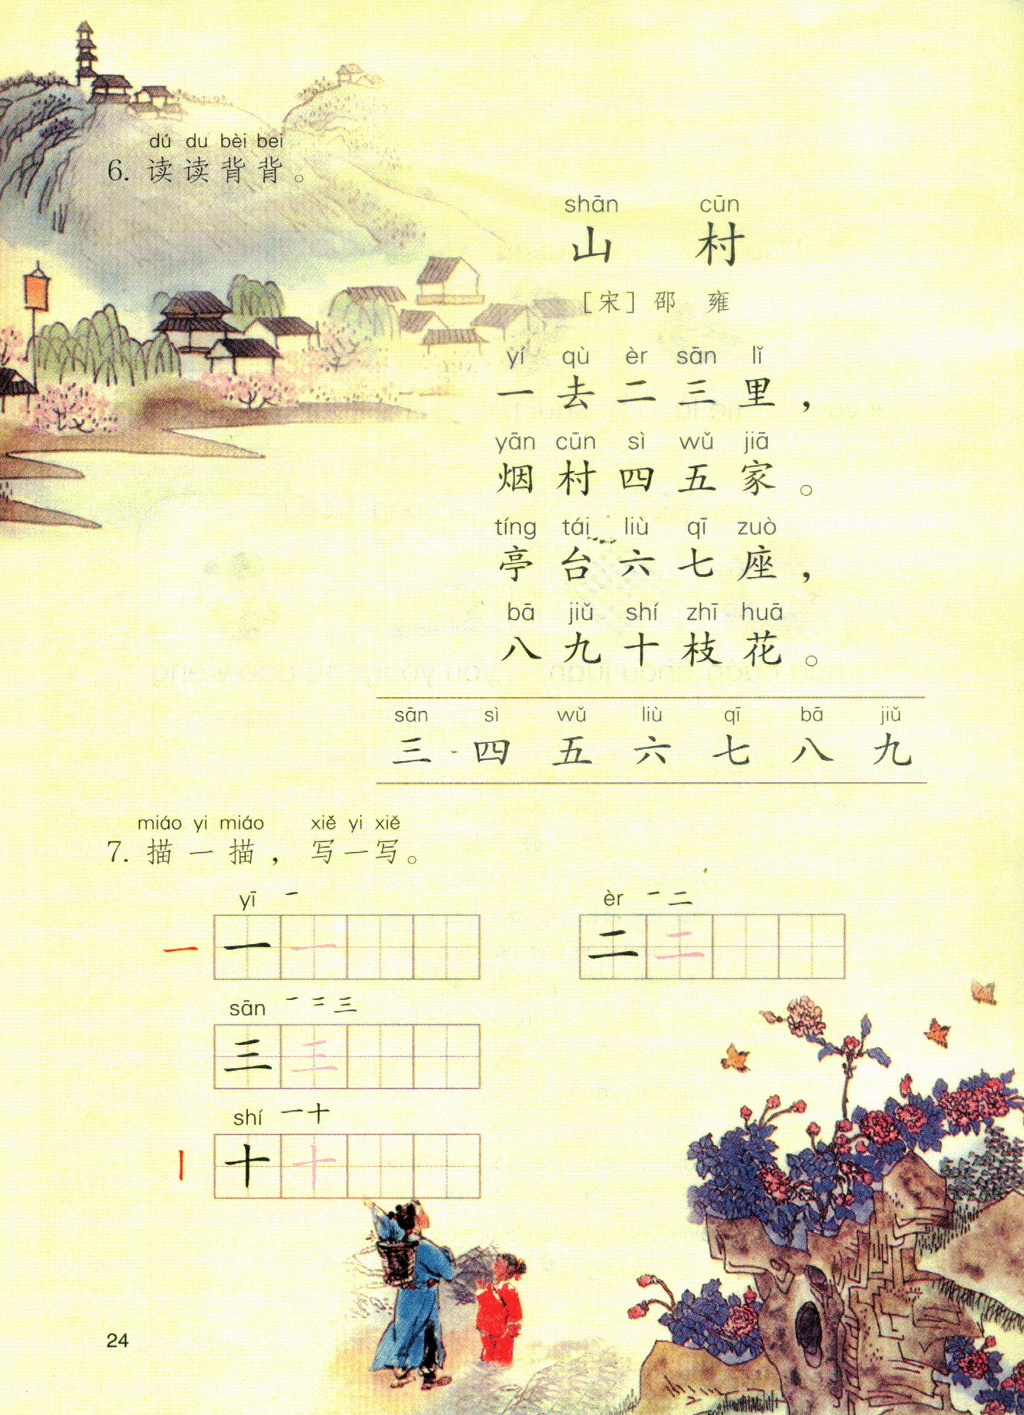 dú du bèi bei
6. 读读背背。
shān cūn
山 村
［宋］邵 雍
yí qù èr sān lǐ
一去二三里，
yān cūn sì wǔ jiā
烟村四五家。
tíng tái liù qī zuò
亭台六七座，
bā jiǔ shí zhī huā
八九十枝花。
sān sì wǔ liù qī bā jiǔ
三 四 五 六 七 八 九
miáo yi miáo xiě yi xiě
7. 描一描，写一写。
yī 一
一 一 一
èr 一 二
二 二
sān 一 二 三
三 三
shí 一 十
丨 十 十
24